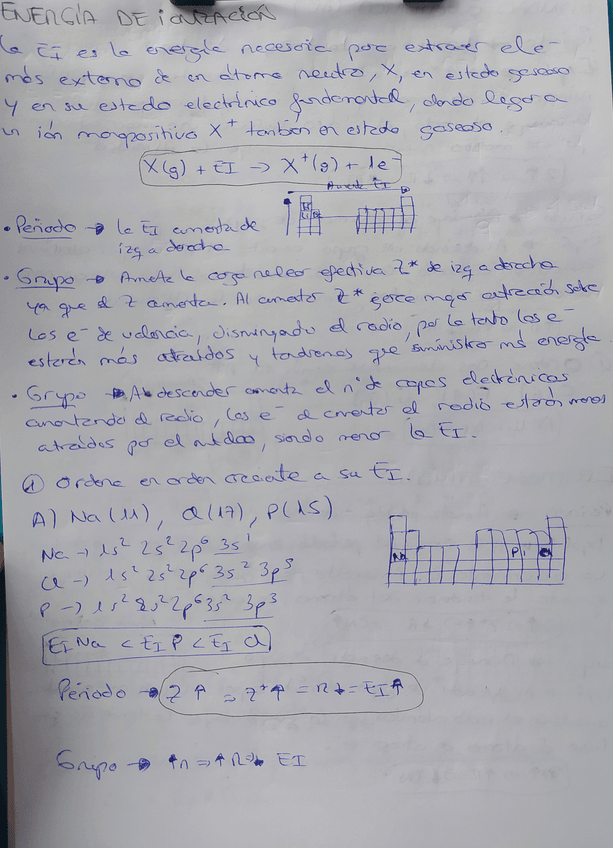 ENERGÍA DE IONIZACIÓN
La EI es la energía necesaria para extraer el e-
más externo de un átomo neutro, X, en estado gaseoso
y en su estado electrónico fundamental, dando lugar a
un ión monopositivo X+ también en estado gaseoso.
X(g) + EI → X+(g) + 1e-
Aumenta EI
• Periodo → la EI aumenta de
izq a derecha
• Grupo → Aumenta la carga nuclear efectiva Z* de izq a derecha
ya que el Z aumenta. Al aumentar Z* ejerce mayor atracción sobre
los e- de valencia, disminuyendo el radio, por lo tanto los e-
estarán más atraídos y tendremos que suministrar más energía
• Grupo → Al descender aumenta el nº de capas electrónicas
aumentando el radio, los e- al aumentar el radio estarán menos
atraídos por el núcleo, siendo menor la EI.
① Ordena en orden creciente a su EI.
A) Na (11), Cl (17), P (15)
Na → 1s² 2s² 2p⁶ 3s¹
Cl → 1s² 2s² 2p⁶ 3s² 3p⁵
P → 1s² 2s² 2p⁶ 3s² 3p³
Na P Cl
EI Na < EI P < EI Cl
Periodo → Z ↑ = Z* ↑ = R ↓ = EI ↑
Grupo → ↑n → ↑R → EI